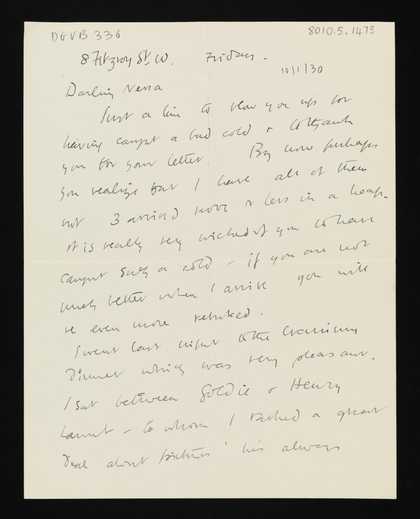 DGVB 336
8010.5.1473
8 Fitzroy St. W. Friday.
10/1/30
Darling Nessa
Just a line to blow you up for
having caught a bad cold & to thank
you for your letter. By now perhaps
you realize that I have all of them
not 3 arrived more or less in a heap.
It is really very wicked of you to have
caught such a cold - if you are not
much better when I arrive you will
be even more rebuked.
I went last night to the Cranium
Dinner which was very pleasant.
I sat between Goldie & Henry
Lamb - to whom I talked a great
deal about pictures his always